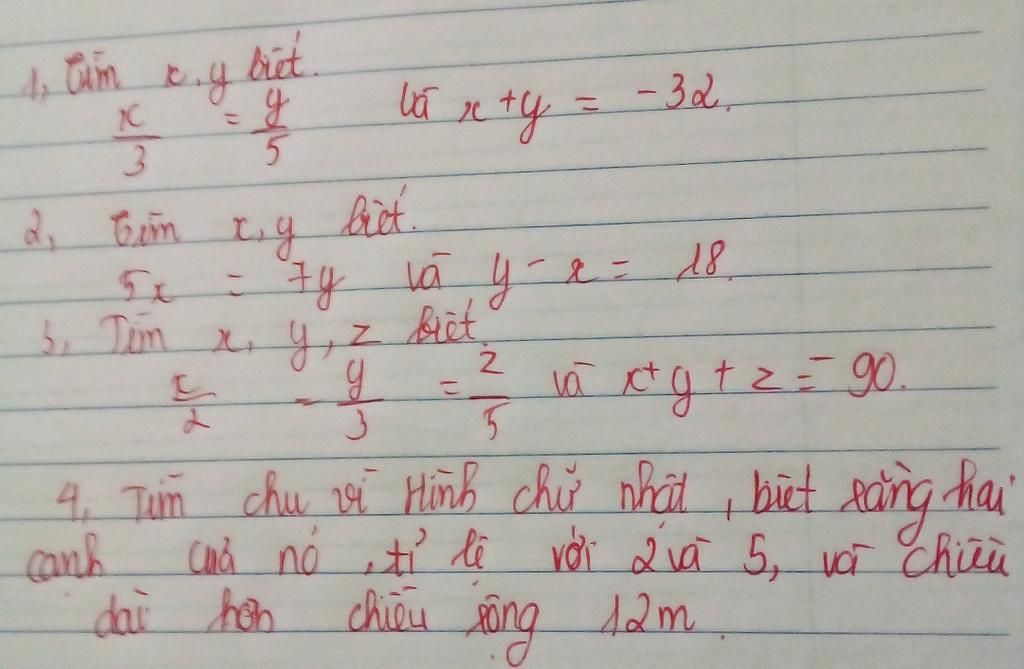 1, Tìm x, y biết.
x/3 = y/5 và x + y = -32.
2, Tìm x, y biết.
5x = 7y và y - x = 18.
3, Tìm x, y, z biết.
x/2 = y/3 = z/5 và x + y + z = -90.
4, Tìm chu vi Hình chữ nhật, biết rằng hai
cạnh của nó, tỉ lệ với 2 và 5, và chiều
dài hơn chiều rộng 12m.